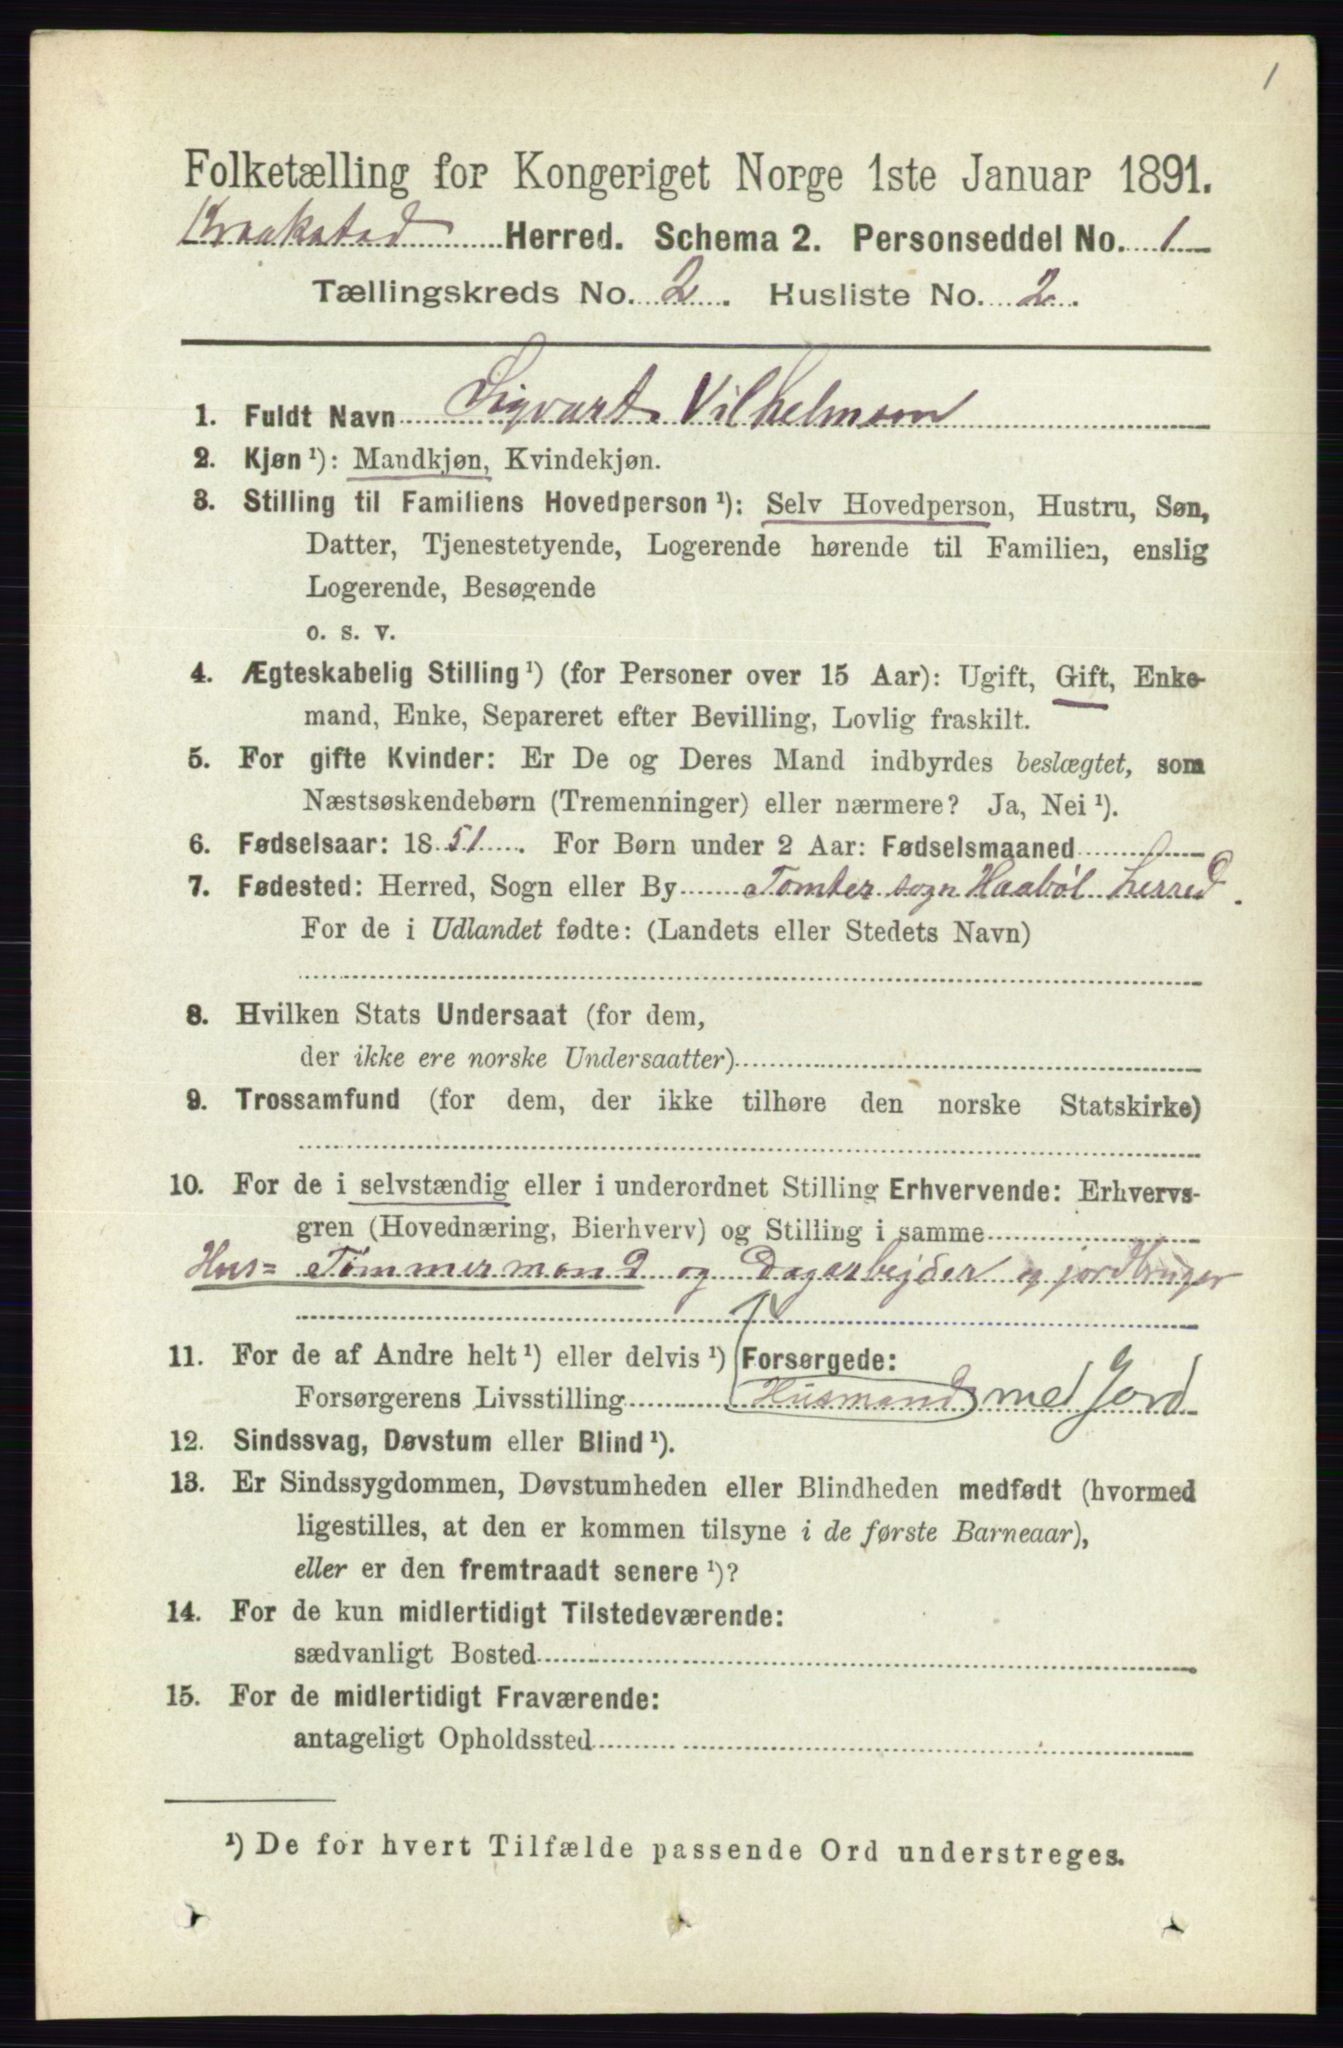 1
Folketælling for Kongeriget Norge 1ste Januar 1891.
Kraakstad Herred. Schema 2. Personseddel No. 1
Tællingskreds No. 2. Husliste No. 2.
1. Fuldt Navn Sigvart Vilhelmsen
2. Kjøn ¹): Mandkjøn, Kvindekjøn.
3. Stilling til Familiens Hovedperson ¹): Selv Hovedperson, Hustru, Søn,
Datter, Tjenestetyende, Logerende hørende til Familien, enslig
Logerende, Besøgende
o. s. v.
4. Ægteskabelig Stilling ¹) (for Personer over 15 Aar): Ugift, Gift, Enke-
mand, Enke, Separeret efter Bevilling, Lovlig fraskilt.
5. For gifte Kvinder: Er De og Deres Mand indbyrdes beslægtet, som
Næstsøskendebørn (Tremenninger) eller nærmere? Ja, Nei ¹).
6. Fødselsaar: 1851. For Børn under 2 Aar: Fødselsmaaned
7. Fødested: Herred, Sogn eller By Tomter sogn Haabøl herred.
For de i Udlandet fødte: (Landets eller Stedets Navn)
8. Hvilken Stats Undersaat (for dem,
der ikke ere norske Undersaatter)
9. Trossamfund (for dem, der ikke tilhøre den norske Statskirke)
10. For de i selvstændig eller i underordnet Stilling Erhvervende: Erhvervs-
gren (Hovednæring, Bierhverv) og Stilling i samme
Hus= Tømmermand og Dagarbejder og jordbruger
11. For de af Andre helt ¹) eller delvis ¹) Forsørgede:
Forsørgerens Livsstilling Husmand med Jord
12. Sindssvag, Døvstum eller Blind ¹).
13. Er Sindssygdommen, Døvstumheden eller Blindheden medfødt (hvormed
ligestilles, at den er kommen tilsyne i de første Barneaar),
eller er den fremtraadt senere ¹)?
14. For de kun midlertidigt Tilstedeværende:
sædvanligt Bosted
15. For de midlertidigt Fraværende:
antageligt Opholdssted
¹) De for hvert Tilfælde passende Ord understreges.